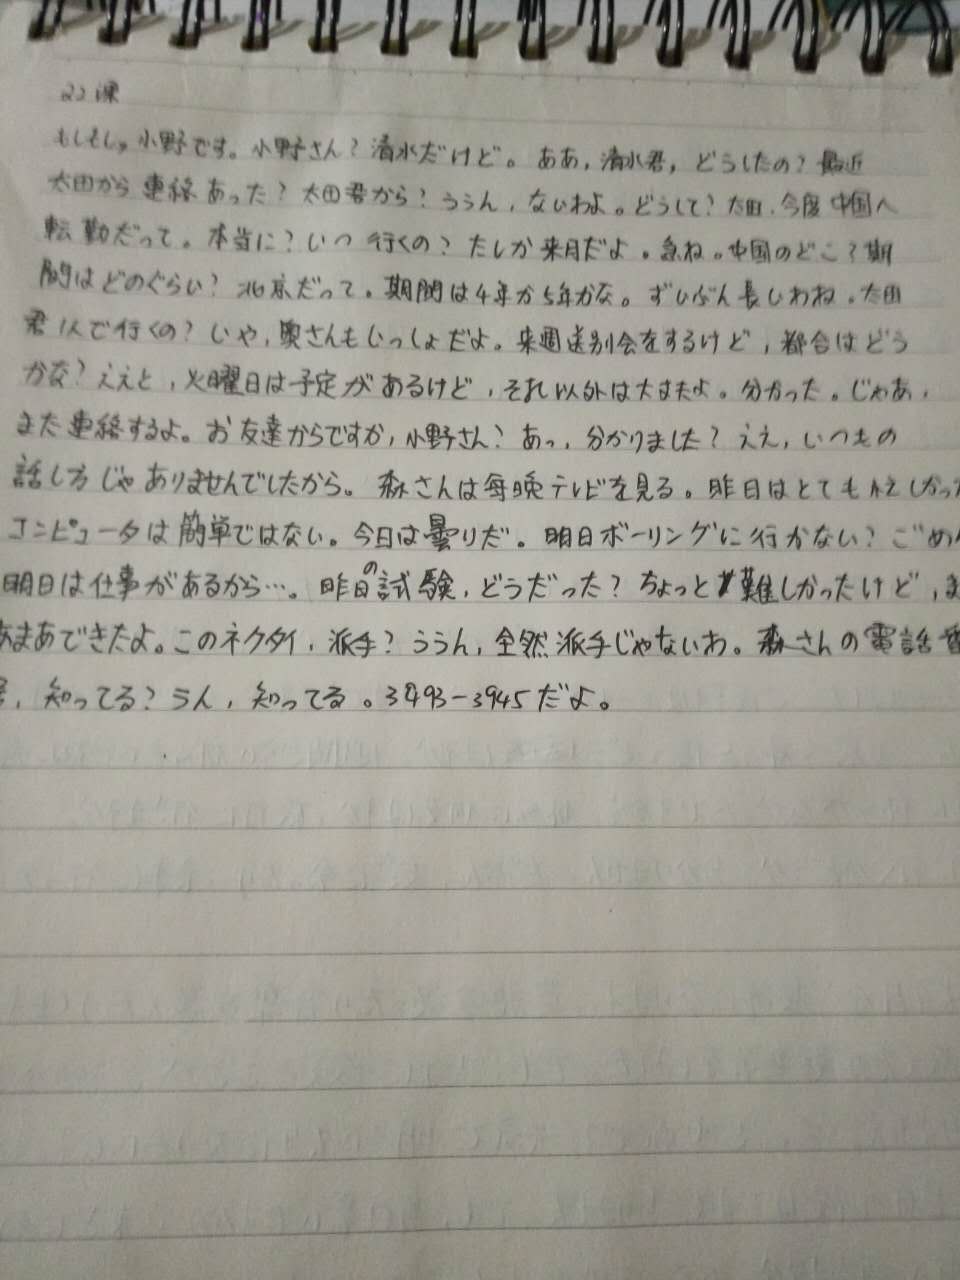 22课
もしもし，小野です。小野さん？清水だけど。ああ，清水君，どうしたの？最近
太田から連絡あった？太田君から？ううん，ないわよ。どうして？太田，今度中国へ
転勤だって。本当に？いつ行くの？たしか来月だよ。急ね。中国のどこ？期
間はどのぐらい？北京だって。期間は4年か5年かな。ずいぶん長いわね。太田
君1人で行くの？いや，奥さんもいっしょだよ。来週送別会をするけど，都合はどう
かな？ええと，火曜日は予定があるけど，それ以外は大丈夫よ。分かった。じゃあ，
また連絡するよ。お友達からですか，小野さん？あっ，分かりました？ええ，いつもの
話し方じゃありませんでしたから。森さんは毎晩テレビを見る。昨日はとても忙しかった
コンピュータは簡単ではない。今日は曇りだ。明日ボーリングに行かない？ごめん
明日は仕事があるから…。昨日の試験，どうだった？ちょっと難しかったけど，ま
あまあできたよ。このネクタイ，派手？ううん，全然派手じゃないわ。森さんの電話番
号，知ってる？うん，知ってる。3493-3945だよ。